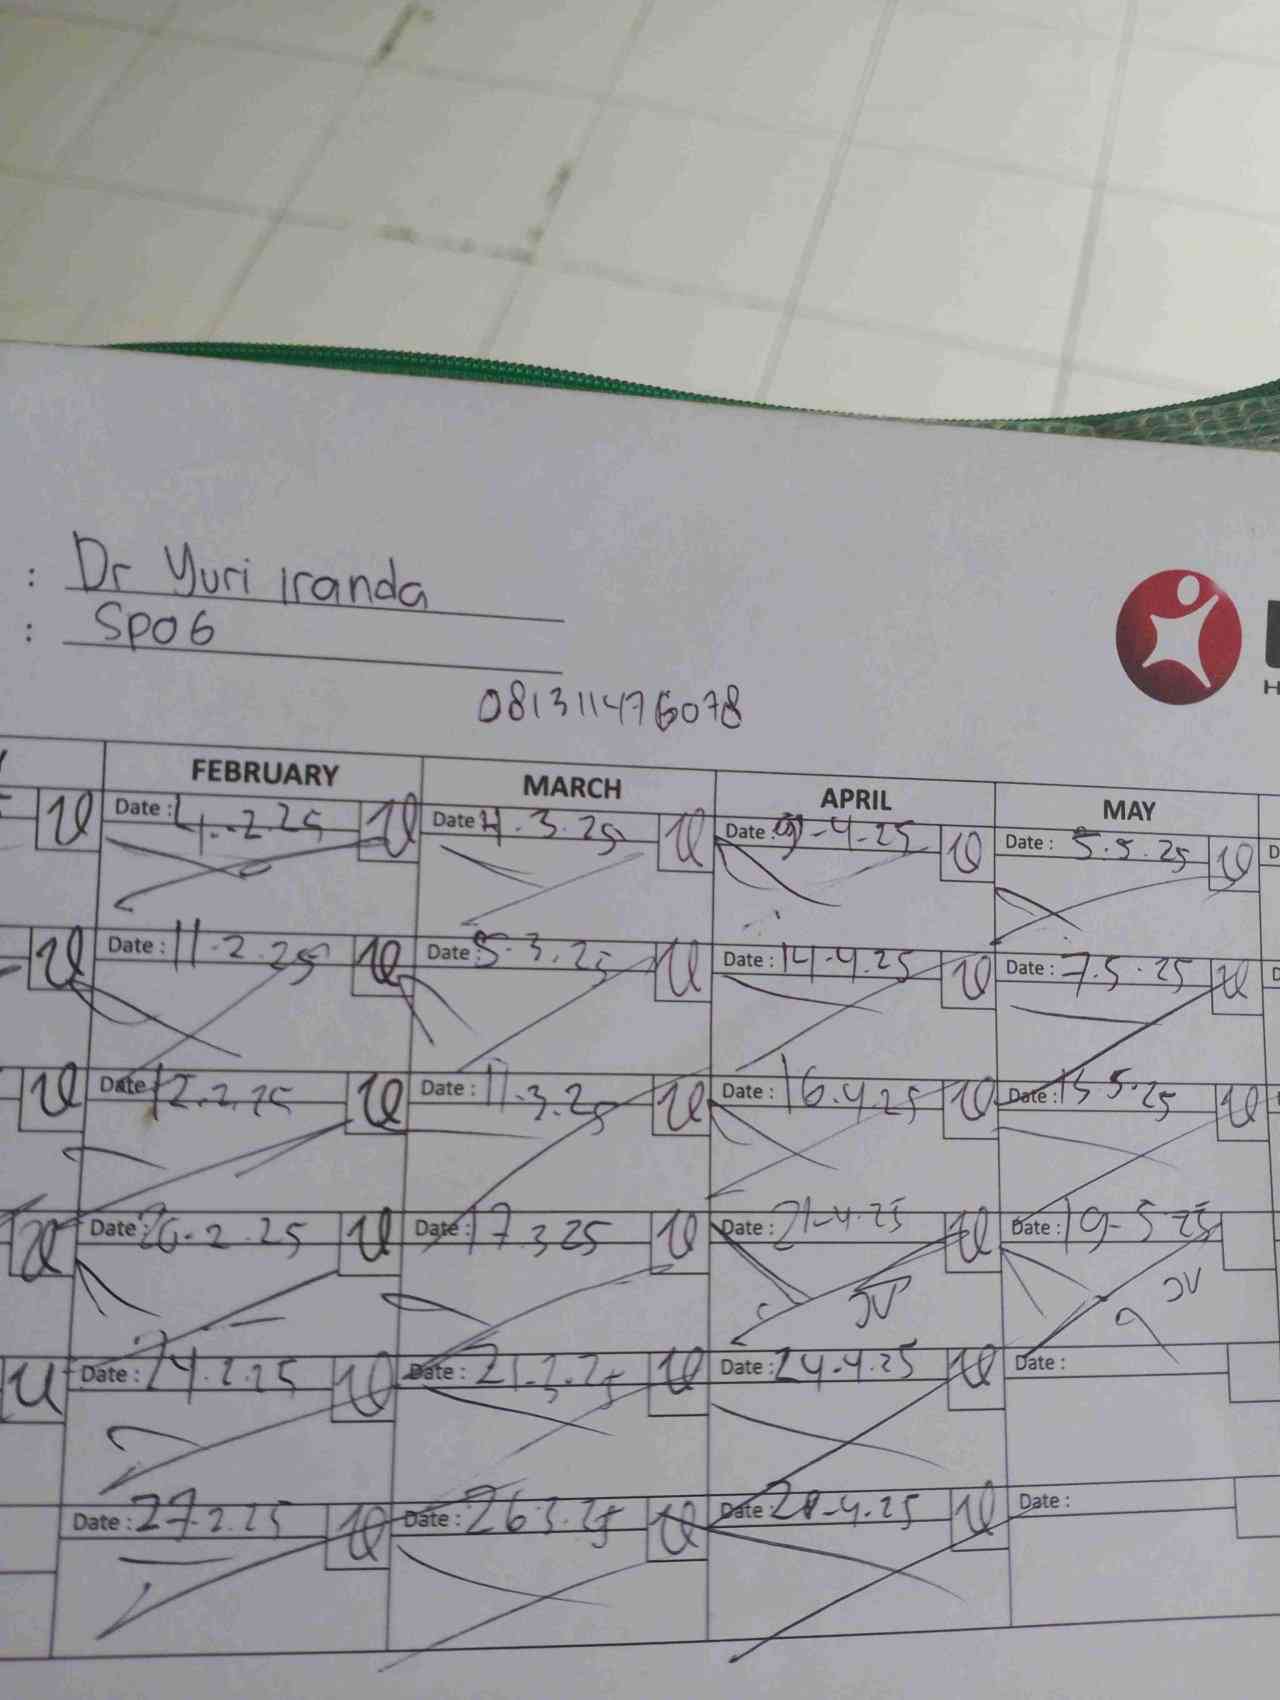 : Dr Yuri Iranda
: SPOG
081311476078
H
FEBRUARY MARCH APRIL MAY
Date : 4.2.25 Date 4.3.25 Date : 9-4.25 Date : 5.5.25
Date : 11.2.25 Date : 5.3.25 Date : 14-4.25 Date : 7.5.25
Date 12.2.25 Date : 11.3.25 Date : 16.4.25 Date : 13.5.25
Date : 20.2.25 Date : 17.3.25 Date : 21-4.25 Date : 19-5.25
JV JV
Date : 24.2.25 Date : 21.3.25 Date : 24.4.25 Date :
Date : 27.2.25 Date : 26.3.25 Date 28-4.25 Date :